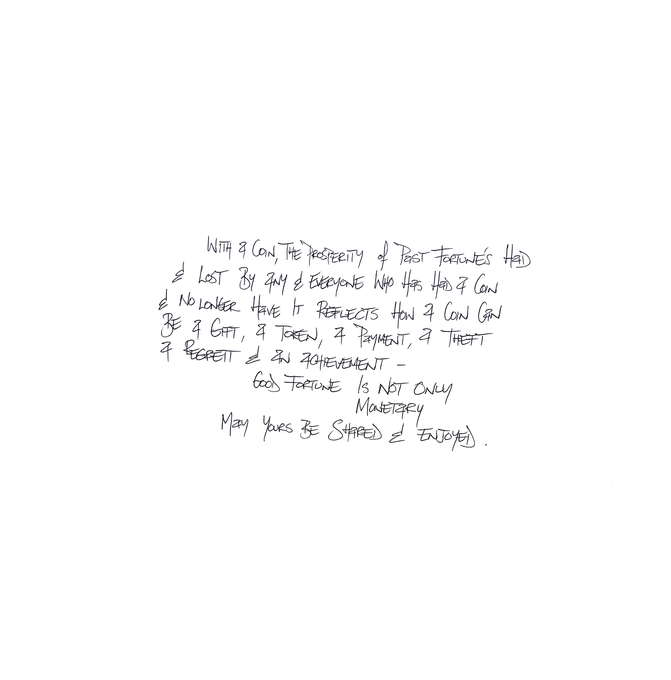 With A Coin, The Prosperity of Past Fortune's Had
& Lost By Any & Everyone Who Has Had A Coin
& No Longer Have It Reflects How A Coin Can
Be A Gift, A Token, A Payment, A Theft
A Regrett & An Achievement –
Good Fortune Is Not Only
Monetary
May Yours Be Shared & Enjoyed.